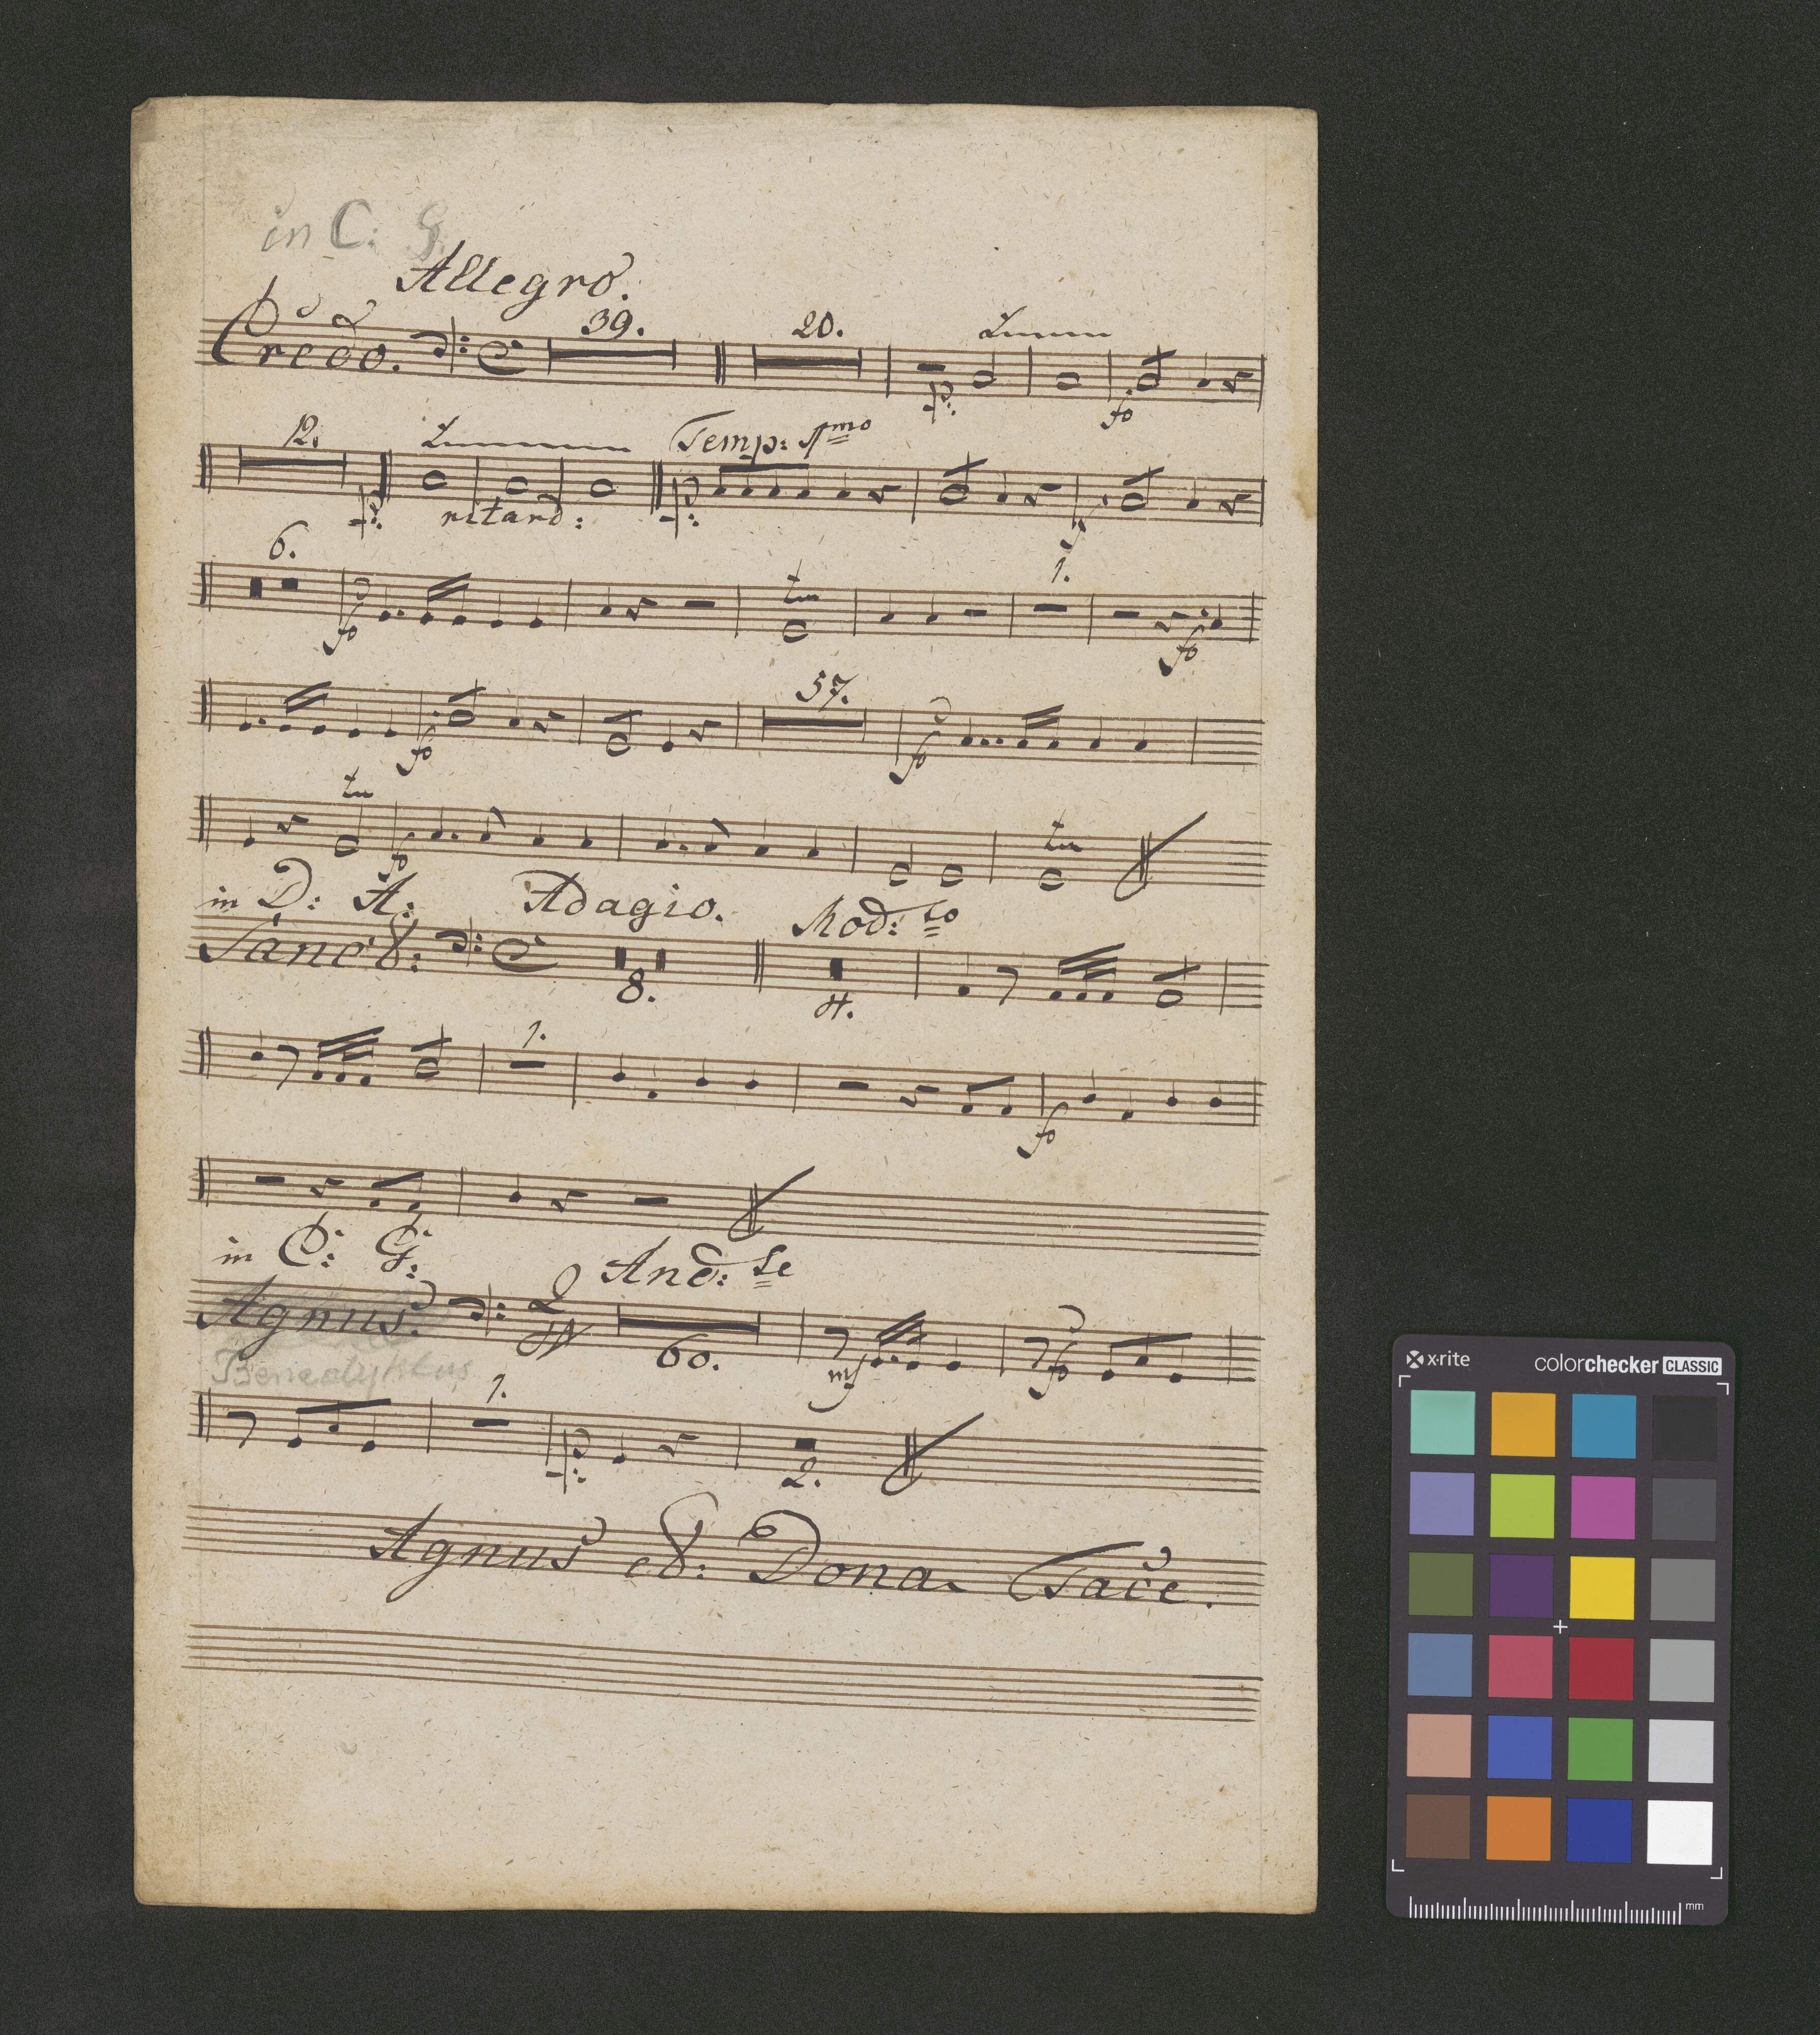 in C: G
Allegro.
Credo. 39. 20.
p: fo
12. Temp: 1mo
p: ritard: p: f
6. tr 1.
fo fo
57.
fo fo
tr tr
fo
in D: A: Adagio. Mod:to
Sanct: 8. 4.
1.
fo
in C: G: And:te
Agnus. 2 4 60. mf fo
Benedyktus
1.
p: 2.
Agnus et: Dona Tace.
x-rite colorchecker CLASSIC
mm